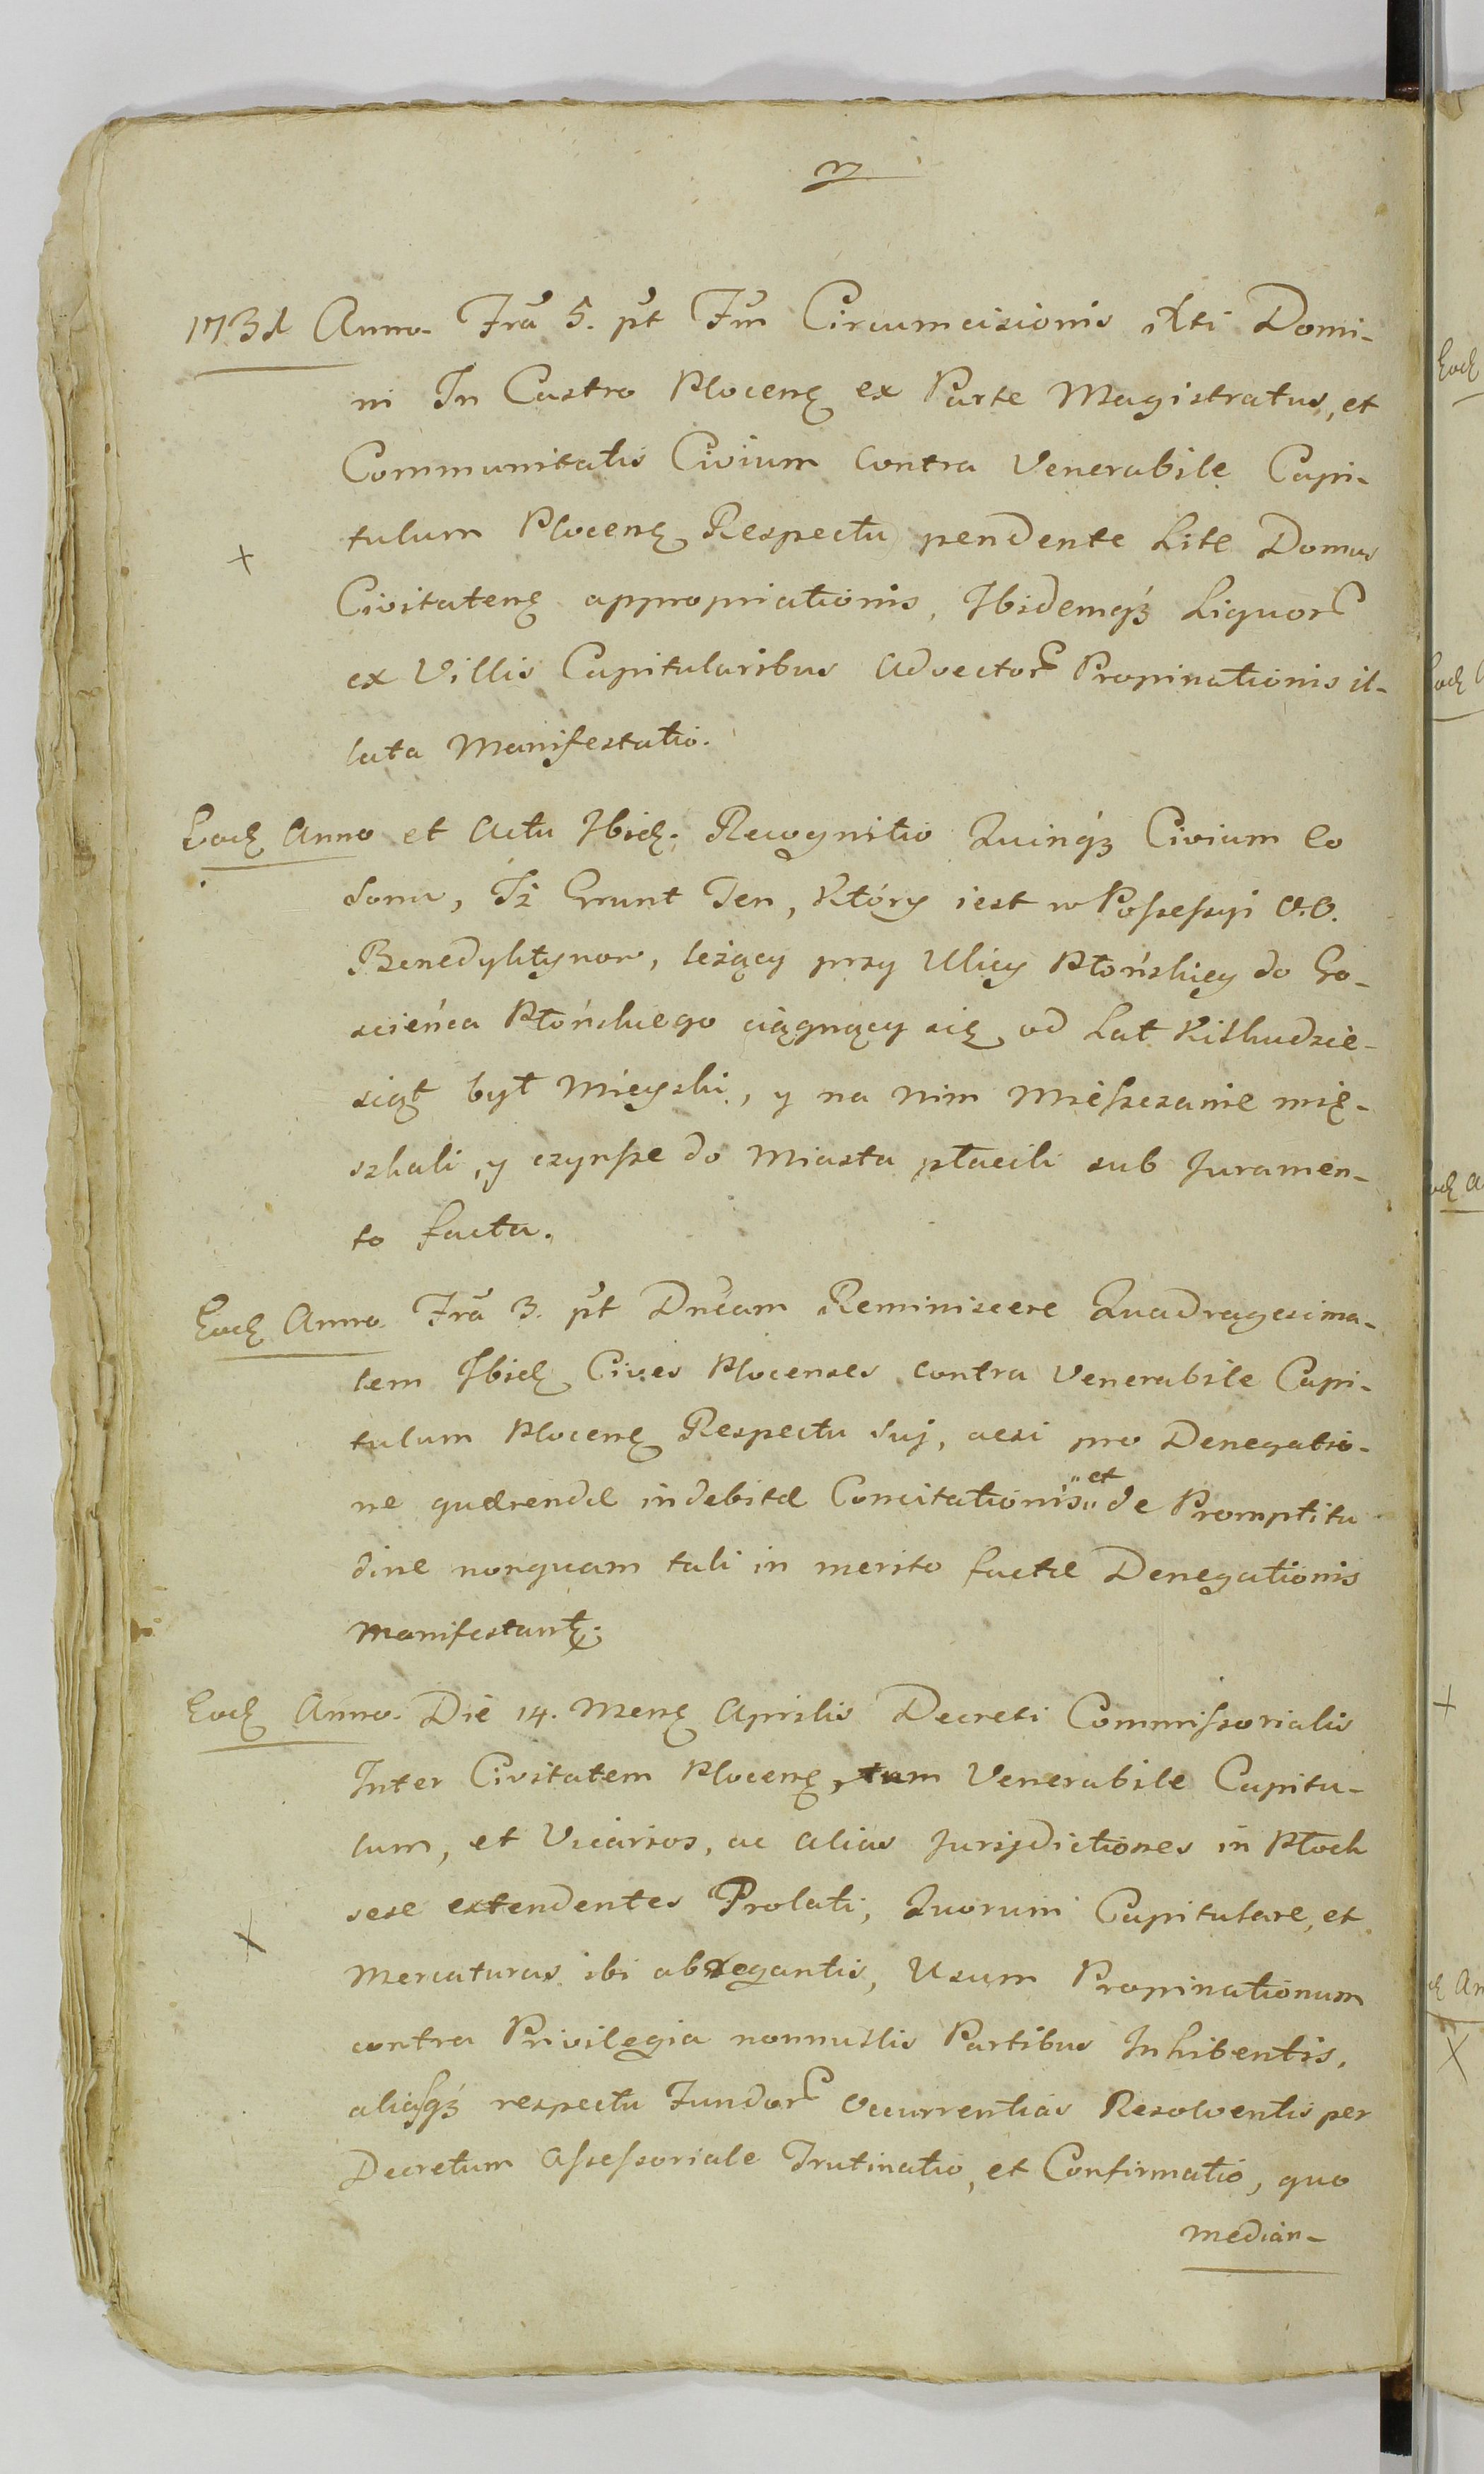 Anno Fra 5. pt Fm Circumcisionis Xti Domi-
ni In Castro Plocens ex Parte Magistratus, et
Communitatis Civium contra Venerabile Capi-
tulum Plocens Respectu pendente Lite Domus
+
Civitatens appropriationis, Ibidemq3 Liquor
ex Villis Capitularibus advector Propinationis il-
lata Manifestatio.
Eod Anno et Actu Ibid. Recognitio Quinq3 Civium eo
sonu, Iż Grunt Ten, Który iest w Possessyi O.O.
Benedyktynow, leżący przy Ulicy Płońskiey do Go-
scieńca Płońskiego ciągnący się od Lat Kilkudzie-
siąt był Mieyski, y na nim Mieszczanie mię-
szkali, y czynsze do Miasta płacili sub Juramen-
to facta.
Eod Anno Fra 3. pt Dncam Reminiscere Quadragesima-
lem Ibid Cives Plocenses contra Venerabile Capi-
tulum Plocens Respectu sui, acsi pro Denegatio-
et
ne quærendæ indebitæ Concitationis de Promptitu
dine nonquam tali in merito factæ Denegationis
Manifestant.
Eod Anno. Die 14. Mens Aprilis Decreti Commissorialis
Inter Civitatem Plocens, tum Venerabile Capitu-
lum, et Vicarios, ac alias Jurisdictiones in Płock
sese extendentes Prolati, Quorum Capitulare, et
X
Mercaturas ibi abregantis, Usum Propinationum
contra Privilegia nonnullis Partibus Inhibentis,
aliasq3 respectu Fundor Occurrentias Resolventis per
Decretum Assessoriale Trutinatio, et Confirmatio, quo
median-
Eod
+
X